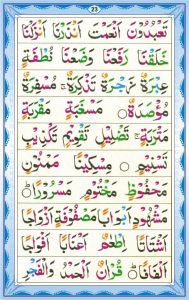 23
تَعْبُدُوْنَ اَنْعَمْتَ اَنْذَرْنَا اَنْزَلْنَا
خَلَقْنَا رَفَعْنَا وَضَعْنَا نُطْفَةٍ
عِبْرَةٌ زَجْرَةٌ تَذْكِرَةٌ مُسْفِرَةٌ
مُؤْصَدَةٌ ○ مَسْغَبَةٍ مَقْرَبَةٍ
مَتْرَبَةٍ ○ تَضْلِيْلٍ تَقْوِيْمٍ تَكْذِيْبٍ
تَسْنِيْمٍ ○ مِسْكِيْنًا مَمْنُوْنٍ
مَحْفُوْظٍ مَخْتُوْمٍ مَسْرُوْرًا ○
مَشْهُوْدٍ اَبْوَابًا مَصْفُوْفَةٌ اَزْوَاجًا
اَشْتَاتًا اِطْعٰمٌ اَعْنَابًا اَفْوَاجًا
اَلْفَافًا ○ قُرْاٰنٌ اَلْحَمْدُ وَالْفَجْرِ